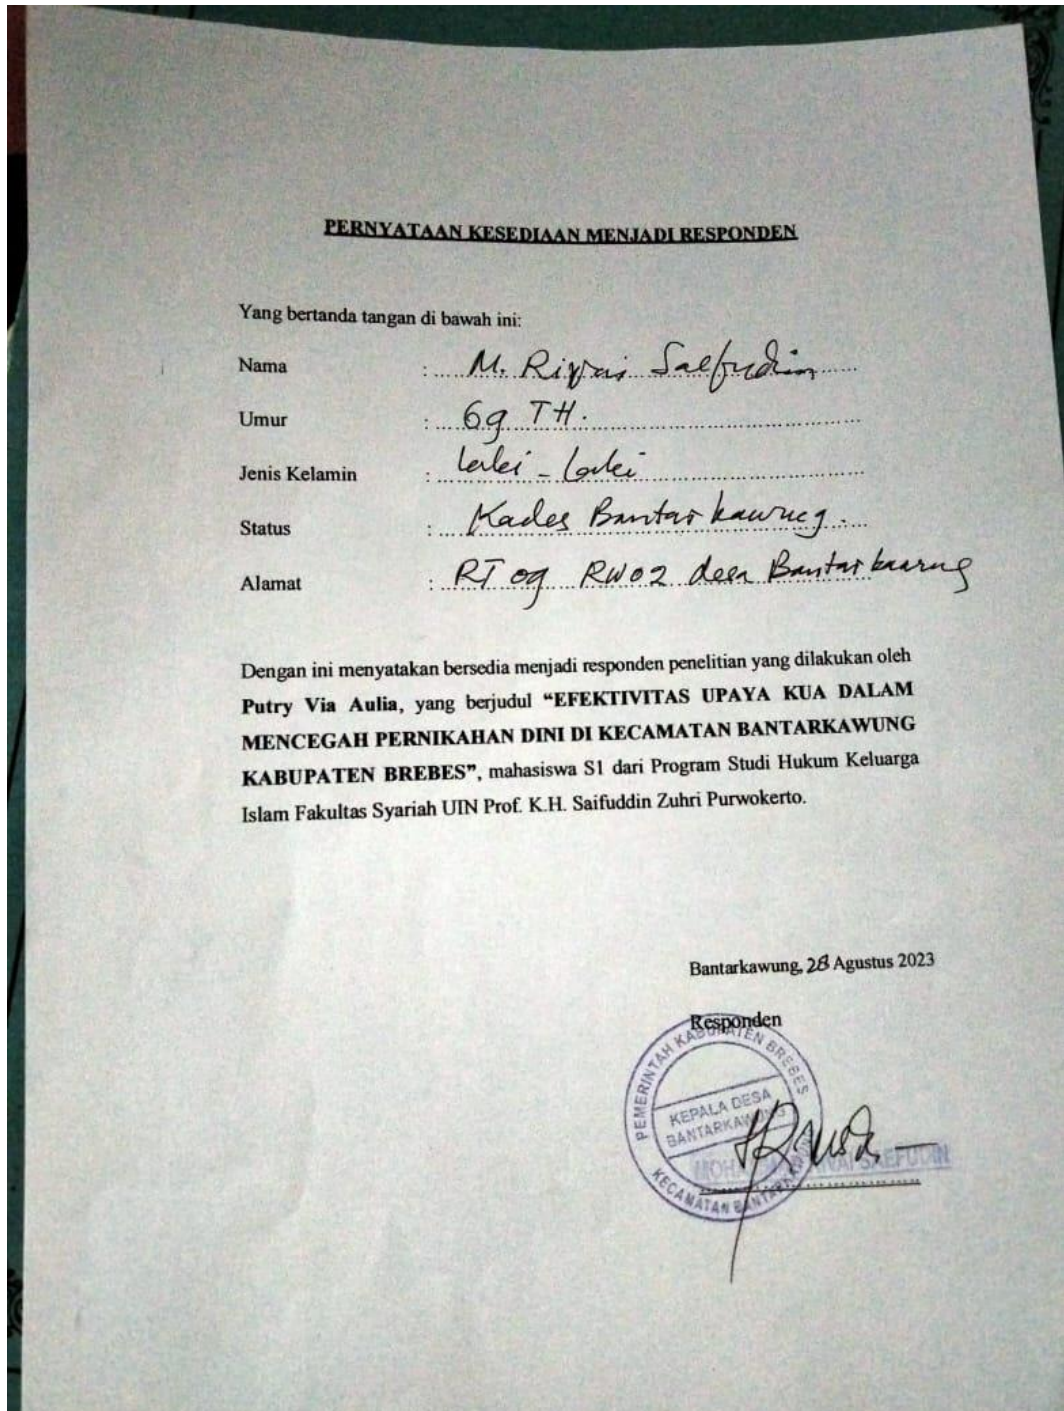 PERNYATAAN KESEDIAAN MENJADI RESPONDEN
Yang bertanda tangan di bawah ini:
Nama : M. Rivai Saefudin
Umur : 69 TH.
Jenis Kelamin : laki - laki
Status : Kades Bantarkawung.
Alamat : RT 09 RW 02 desa Bantarkawung
Dengan ini menyatakan bersedia menjadi responden penelitian yang dilakukan oleh
Putry Via Aulia, yang berjudul “EFEKTIVITAS UPAYA KUA DALAM
MENCEGAH PERNIKAHAN DINI DI KECAMATAN BANTARKAWUNG
KABUPATEN BREBES”, mahasiswa S1 dari Program Studi Hukum Keluarga
Islam Fakultas Syariah UIN Prof. K.H. Saifuddin Zuhri Purwokerto.
Bantarkawung, 28 Agustus 2023
Responden
PEMERINTAH KABUPATEN BREBES
KEPALA DESA
BANTARKAWUNG
KECAMATAN BANTARKAWUNG
SAEFUDIN